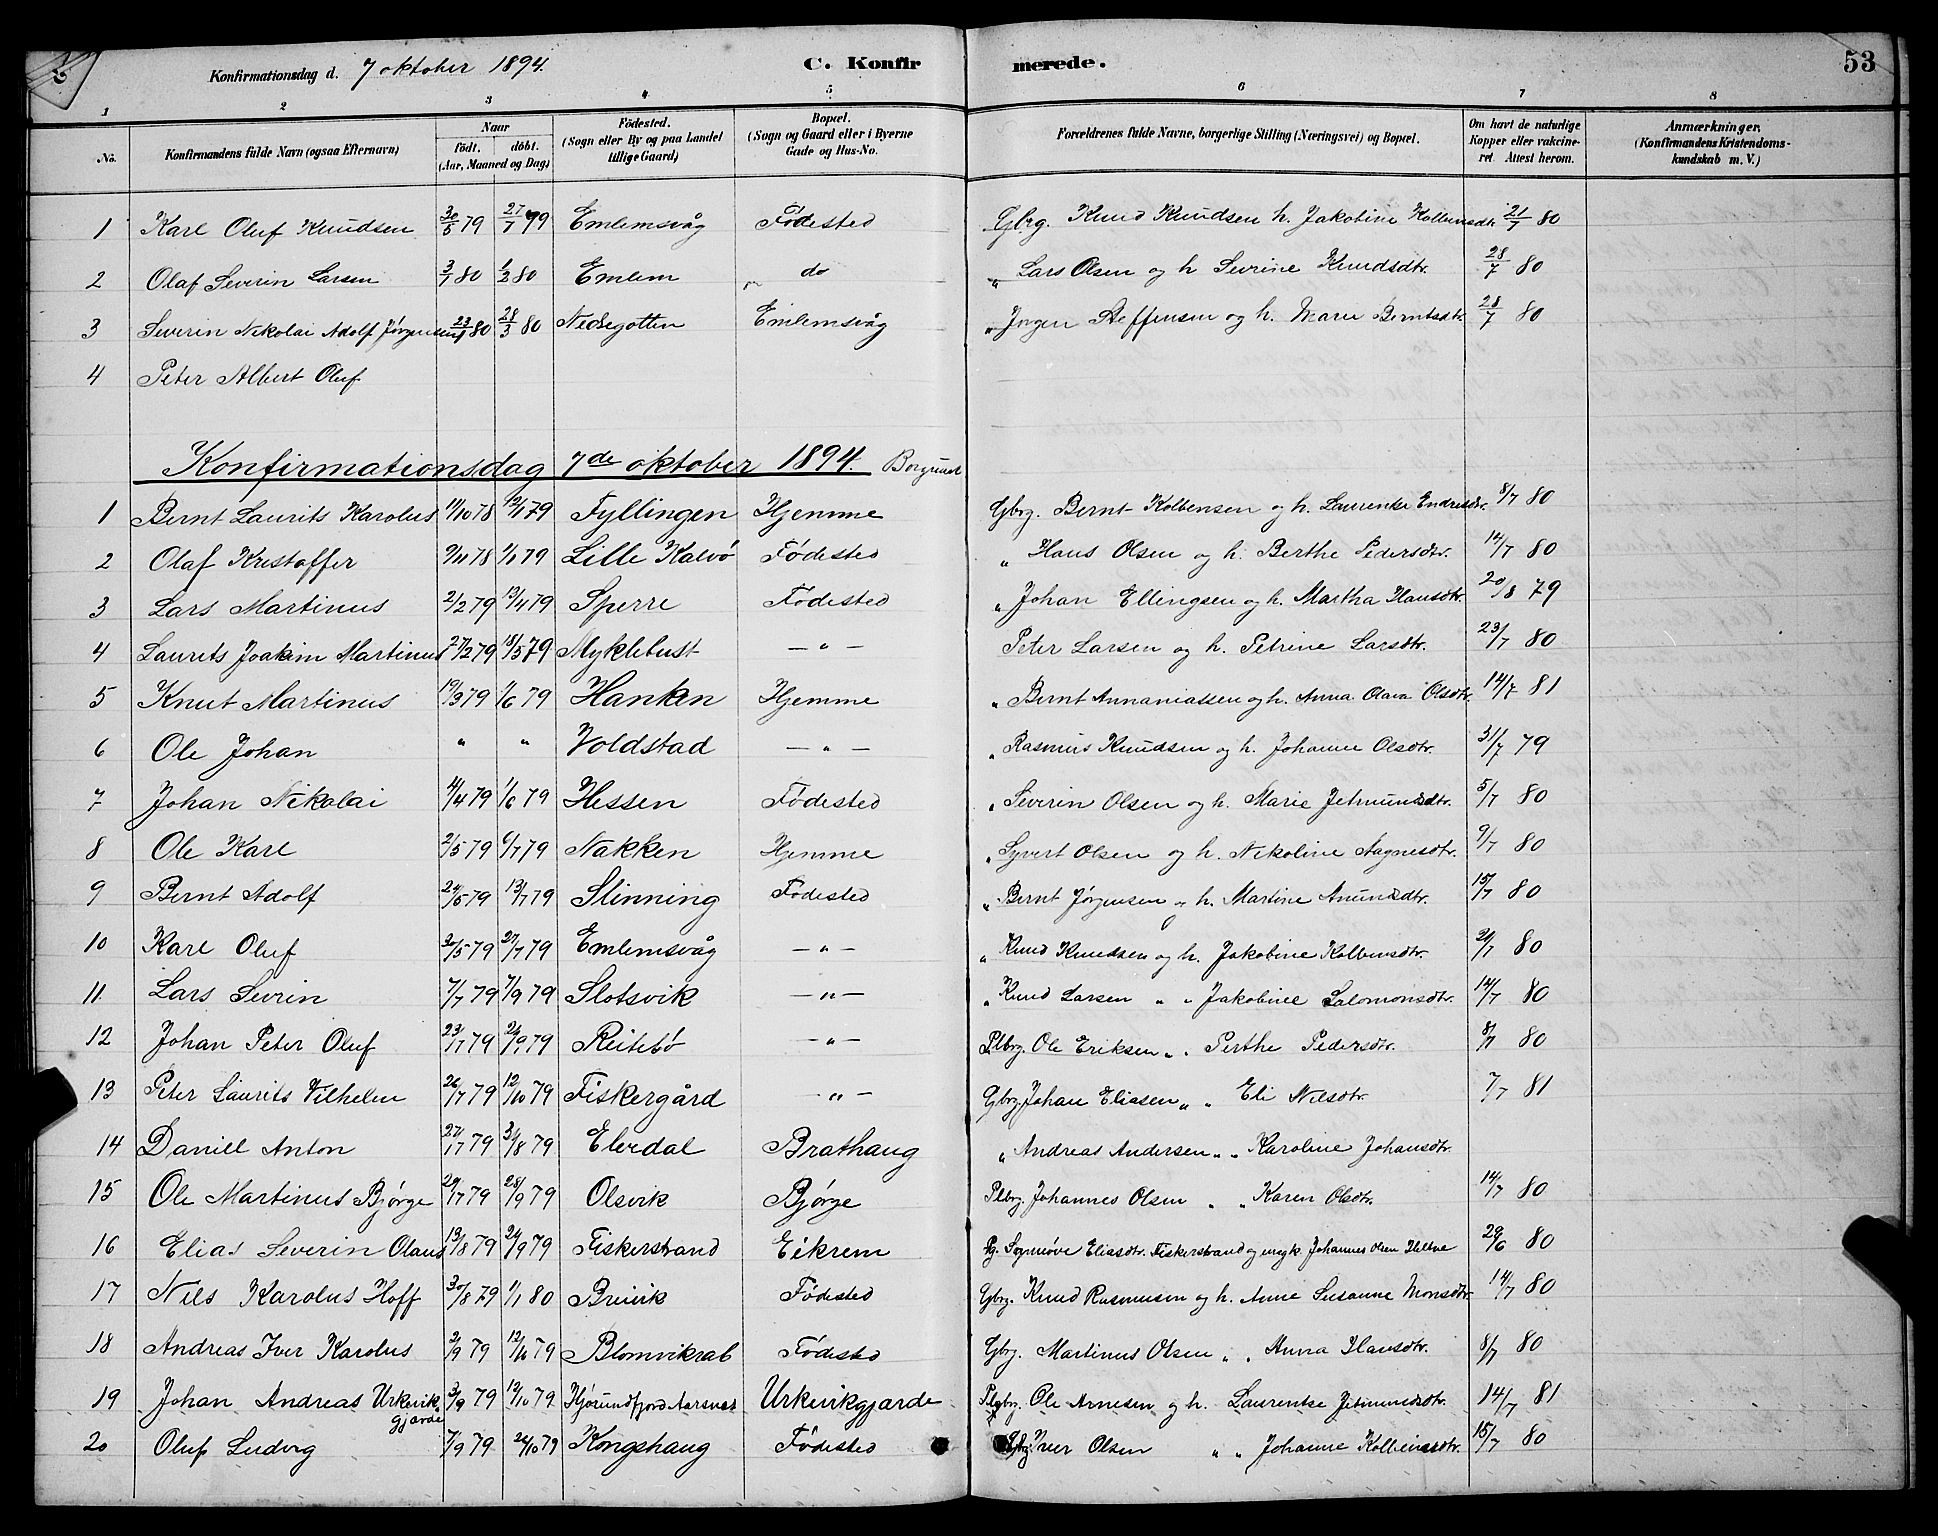 Konfirmationsdag d. 7 oktober 1894. C. Konfir merede. 53
1 2 3 4 5 6 7 8
No. Konfirmandens fulde Navn (ogsaa Efternavn) Naar født. døbt. (Aar, Maaned og Dag) Fødested. (Sogn eller By og paa Landet tillige Gaard) Bopæl. (Sogn og Gaard eller i Byerne Gade og Hus-No. Forældrenes fulde Navne, borgerlige Stilling (Næringsvei) og Bopæl. Om havt de naturlige Kopper eller vakcineret. Attest herom. Anmærkninger. (Konfirmandens Kristendomskundskab m. V.)
1 Karl Oluf Knudsen 30/5 79 27/7 79 Emlemsvåg Fødested Gbrg. Knud Knudsen h. Jakobine Kolbensdtr. 21/7 80
2 Olaf Severin Larsen 3/1 80 1/3 80 Emlem do " Lars Olsen og h Sevrine Knudsdtr. 28/7 80
3 Severin Nikolai Adolf Jørgensen 23/1 80 28/3 80 Nedregotten Emlemsvåg " Jørgen Steffensen og h. Marie Berntsdtr. 28/7 80
4 Peter Albert Oluf
Konfirmationsdag 7de oktober 1894. Borgund
1 Bernt Laurits Karolus 11/10 78 12/1 79 Fyllingen Hjemme Gbrg. Bernt Kolbensen og h. Laurentse Endresdtr. 8/7 80
2 Olaf Kristoffer 9/11 78 1/1 79 Lille Kalvø Fødested " Hans Olsen og h. Berthe Pedersdtr. 14/7 80
3 Lars Martinus 2/2 79 13/4 79 Sperre Fødested " Johan Ellingsen og h. Martha Hansdtr. 20/8 79
4 Laurits Joakim Martinus 27/2 79 18/5 79 Myklebust — " — Peter Larsen og h. Petrine Larsdtr. 23/7 80
5 Knut Martinus 19/3 79 1/6 79 Hanken Hjemme " Bernt Annaniassen og h. Anna Olava Olsdtr. 14/7 81
6 Ole Johan " " Voldstad — " — " Rasmus Knudsen og h. Johanne Olsdtr. 31/7 79
7 Johan Nikolai 11/4 79 1/6 79 Hessen Fødested " Severin Olsen og h. Marie Jetmundsdtr. 5/7 80
8 Ole Karl 2/5 79 6/7 79 Nakken Hjemme " Syvert Olsen og h. Nikoline Aagnesdtr. 9/7 80
9 Bernt Adolf 24/5 79 13/7 79 Slinning Fødested " Bernt Jørgensen og h. Martine Anundsdtr. 15/7 80
10 Karl Oluf 30/5 79 27/7 79 Emlemsvåg — " — " Knud Knudsen og h. Jakobine Kolbensdtr. 21/7 80
11. Lars Sevrin 7/7 79 7/9 79 Slotsvik — " — " Knud Larsen " " Jakobine Salomonsdtr. 14/7 80
12 Johan Peter Oluf 23/7 79 21/9 79 Reitebø — " — Plbrg. Ole Eriksen " " Perthe Pedersdtr. 8/7 80
13 Peter Laurits Vilhelm 26/7 79 12/10 79 Fiskergård — " — Gbrg. Johan Eliasen " " Eli Nilsdtr. 7/7 81
14 Daniel Anton 27/7 79 31/8 79 Elverdal Brathaug " Andreas Andersen " " Karoline Johansdtr.
15 Ole Martinus Bjørge 29/7 79 28/9 79 Olsvik Bjørge Plbrg. Johannes Olsen " " Karen Olsdtr. 14/7 80
16 Elias Severin Olaus 13/8 79 21/9 79 Fiskerstrand Eikrem Pg. Sygnøve Eliasdtr. Fiskerstrand og ungk. Johannes Olsen 29/6 80
17 Nils Karolus Hoff 30/8 79 1/1 80 Breivik Fødested Gbrg. Knud Rasmusen og h. Anne Susanne Monsdtr. 14/7 80
18 Andreas Iver Karolus 2/9 79 12/10 79 Blomvikrab Fødested Gbrg. Martinus Olsen " " Anna Hansdtr. 8/7 80
19 Johan Andreas Urkevikgjærde 3/9 79 19/10 79 Hjørundfjord Aarsnes Urkevikgjærde Plbrg. Ole Arnesen og h. Laurentse Jetmundsdtr. 14/7 81
20 Oluf Ludvig 7/9 79 26/10 79 Kongshaug Fødested Gbrg. Iver Olsen " " Johanne Kolbensdtr. 15/7 80